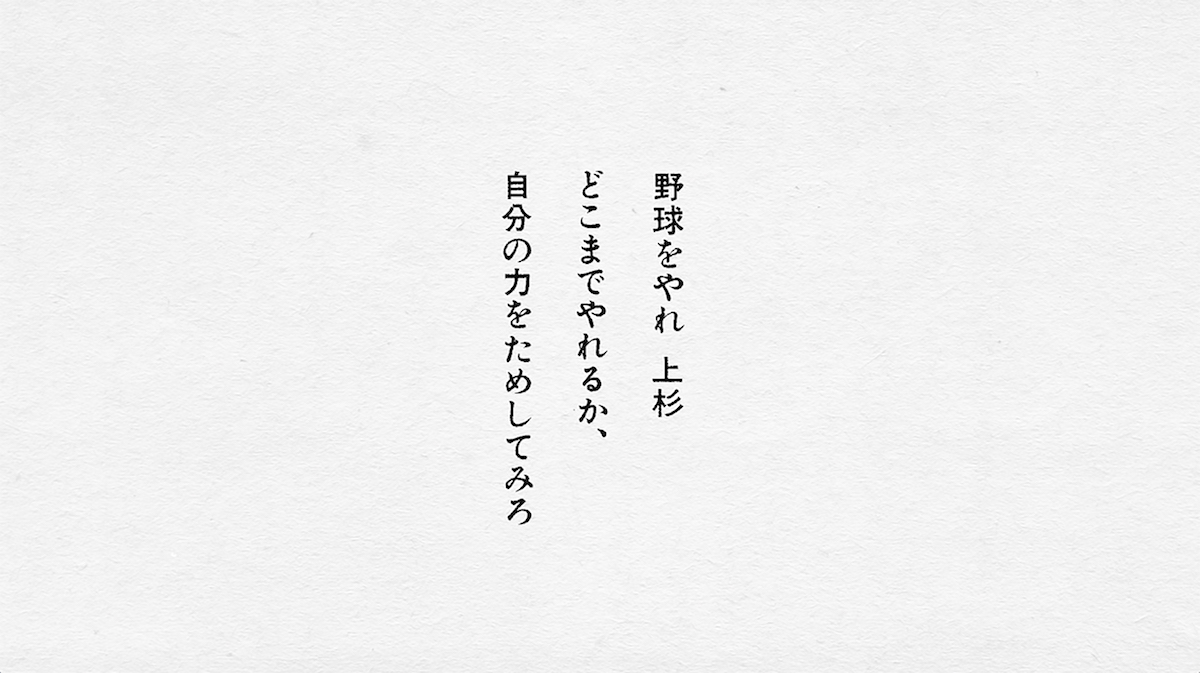 野球をやれ 上杉
どこまでやれるか、
自分の力をためしてみろ